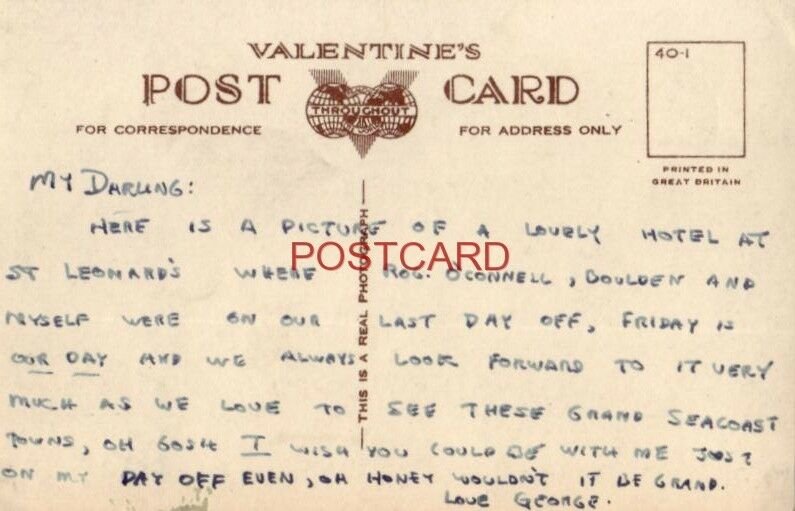 VALENTINE'S
POST CARD
THROUGHOUT
FOR CORRESPONDENCE
FOR ADDRESS ONLY
40-1
PRINTED IN
GREAT BRITAIN
THIS IS A REAL PHOTOGRAPH
MY DARLING:
HERE IS A PICTURE OF A LOVELY HOTEL AT
ST LEONARD'S WHERE ROG. O'CONNELL, BOULDEN AND
MYSELF WERE ON OUR LAST DAY OFF, FRIDAY IS
OUR DAY AND WE ALWAYS LOOK FORWARD TO IT VERY
MUCH AS WE LOVE TO SEE THESE GRAND SEACOAST
TOWNS, OH GOSH I WISH YOU COULD BE WITH ME JUST
ON MY DAY OFF EVEN, OH HONEY WOULDN'T IT BE GRAND.
LOVE GEORGE.
POSTCARD